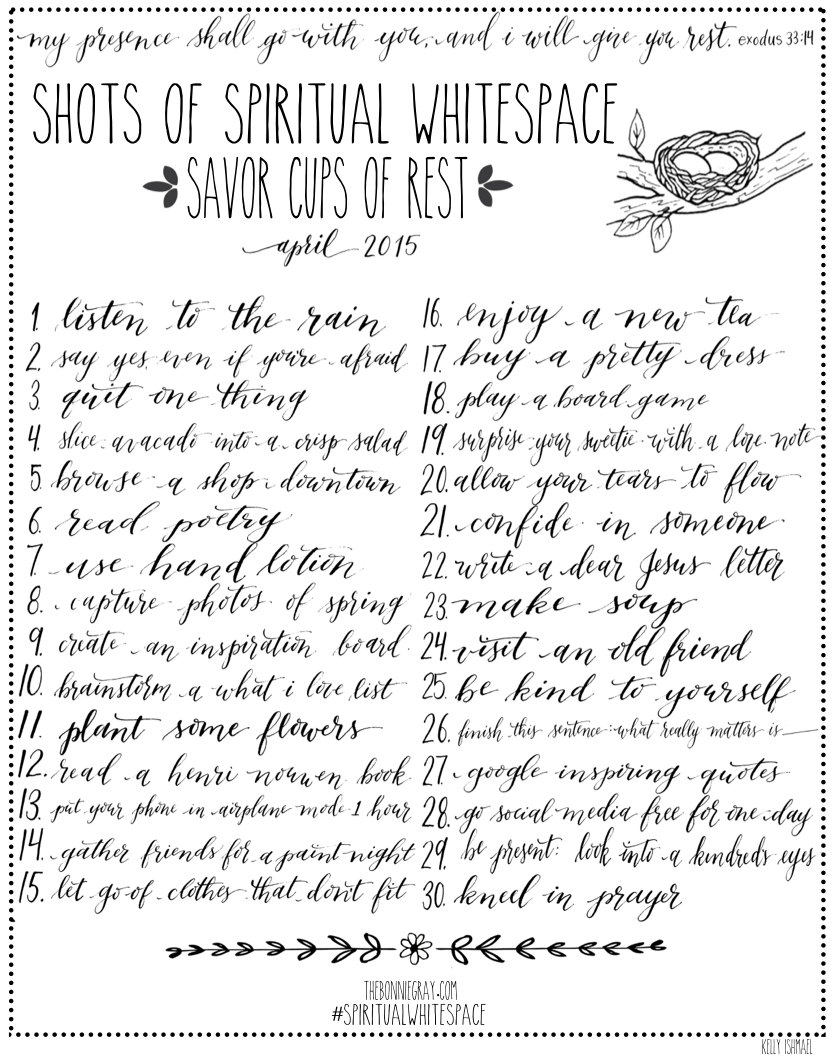 my presence shall go with you, and i will give you rest. exodus 33:14
SHOTS OF SPIRITUAL WHITESPACE
SAVOR CUPS OF REST
april 2015
1. listen to the rain
2. say yes even if you're afraid
3. quit one thing
4. slice avacado into a crisp salad
5. browse a shop downtown
6. read poetry
7. use hand lotion
8. capture photos of spring
9. create an inspiration board
10. brainstorm a what i love list
11. plant some flowers
12. read a henri nouwen book
13. put your phone in airplane mode 1 hour
14. gather friends for a paint night
15. let go of clothes that don't fit
16. enjoy a new tea
17. buy a pretty dress
18. play a board game
19. surprise your sweetie with a love note
20. allow your tears to flow
21. confide in someone
22. write a dear Jesus letter
23. make soup
24. visit an old friend
25. be kind to yourself
26. finish this sentence: what really matters is
27. google inspiring quotes
28. go social media free for one day
29. be present: look into a kindreds eyes
30. kneel in prayer
THEBONNIEGRAY.COM
#SPIRITUALWHITESPACE
KELLY ISHMAEL